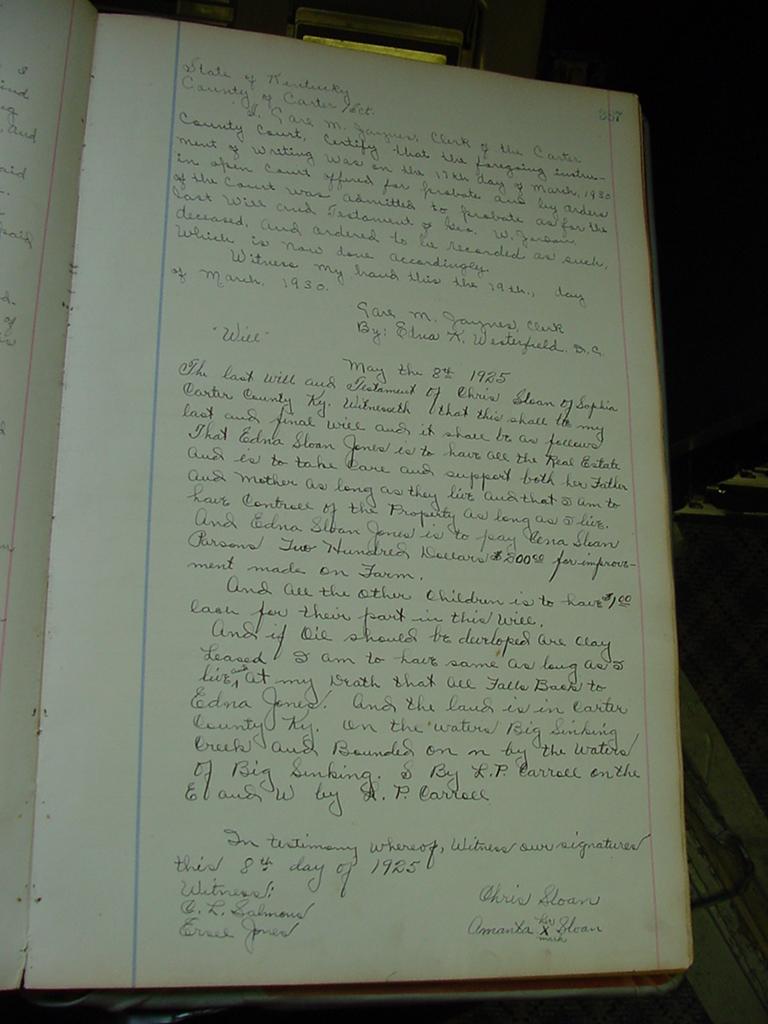 387
State of Kentucky
County of Carter /Sct.
I, Gare M. Jaynes, Clerk of the Carter
County Court, certify that the foregoing instru-
ment of Writing was on the 17th day of March, 1930
in open Court offered for probate and by orders
of the Court was admitted to probate as for the
last Will and Testament of Geo. W. Jordan,
deceased, and ordered to be recorded as such,
Which is now done accordingly.
Witness my hand this the 19th., day
of March, 1930.
Gare M. Jaynes, Clerk
By: Edna K. Westerfield, D.C.
"Will"
May the 8th 1925
The last Will and Testament of Chris Sloan of Sophia
Carter County Ky. Witnesseth that this shall be my
last and final will and it shall be as follows
That Edna Sloan Jones is to have all the Real Estate
and is to take care and support both her Father
and Mother as long as they live and that I am to
have Controll of the Property as long as I live.
And Edna Sloan Jones is to pay Sloan
Parsons Two Hundred Dollars $200.00 for improve-
ment made on Farm.
And all the other Children is to have $1.00
each for their part in this Will.
And if Oil should be developed are clay
Leased I am to have same as long as I
live, and at my Death that all Falls Back to
Edna Jones. And the land is in Carter
County Ky. on the waters Big Sinking
Creek and Bounded on n by the Waters
of Big Sinking. S By L.P. Carroll on the
E and W by L. P. Carroll
In testimony whereof, Witness our signatures
this 8th day of 1925
Witness:
C. L. Salmons
Ersel Jones
Chris Sloan
Amanta her X mark Sloan